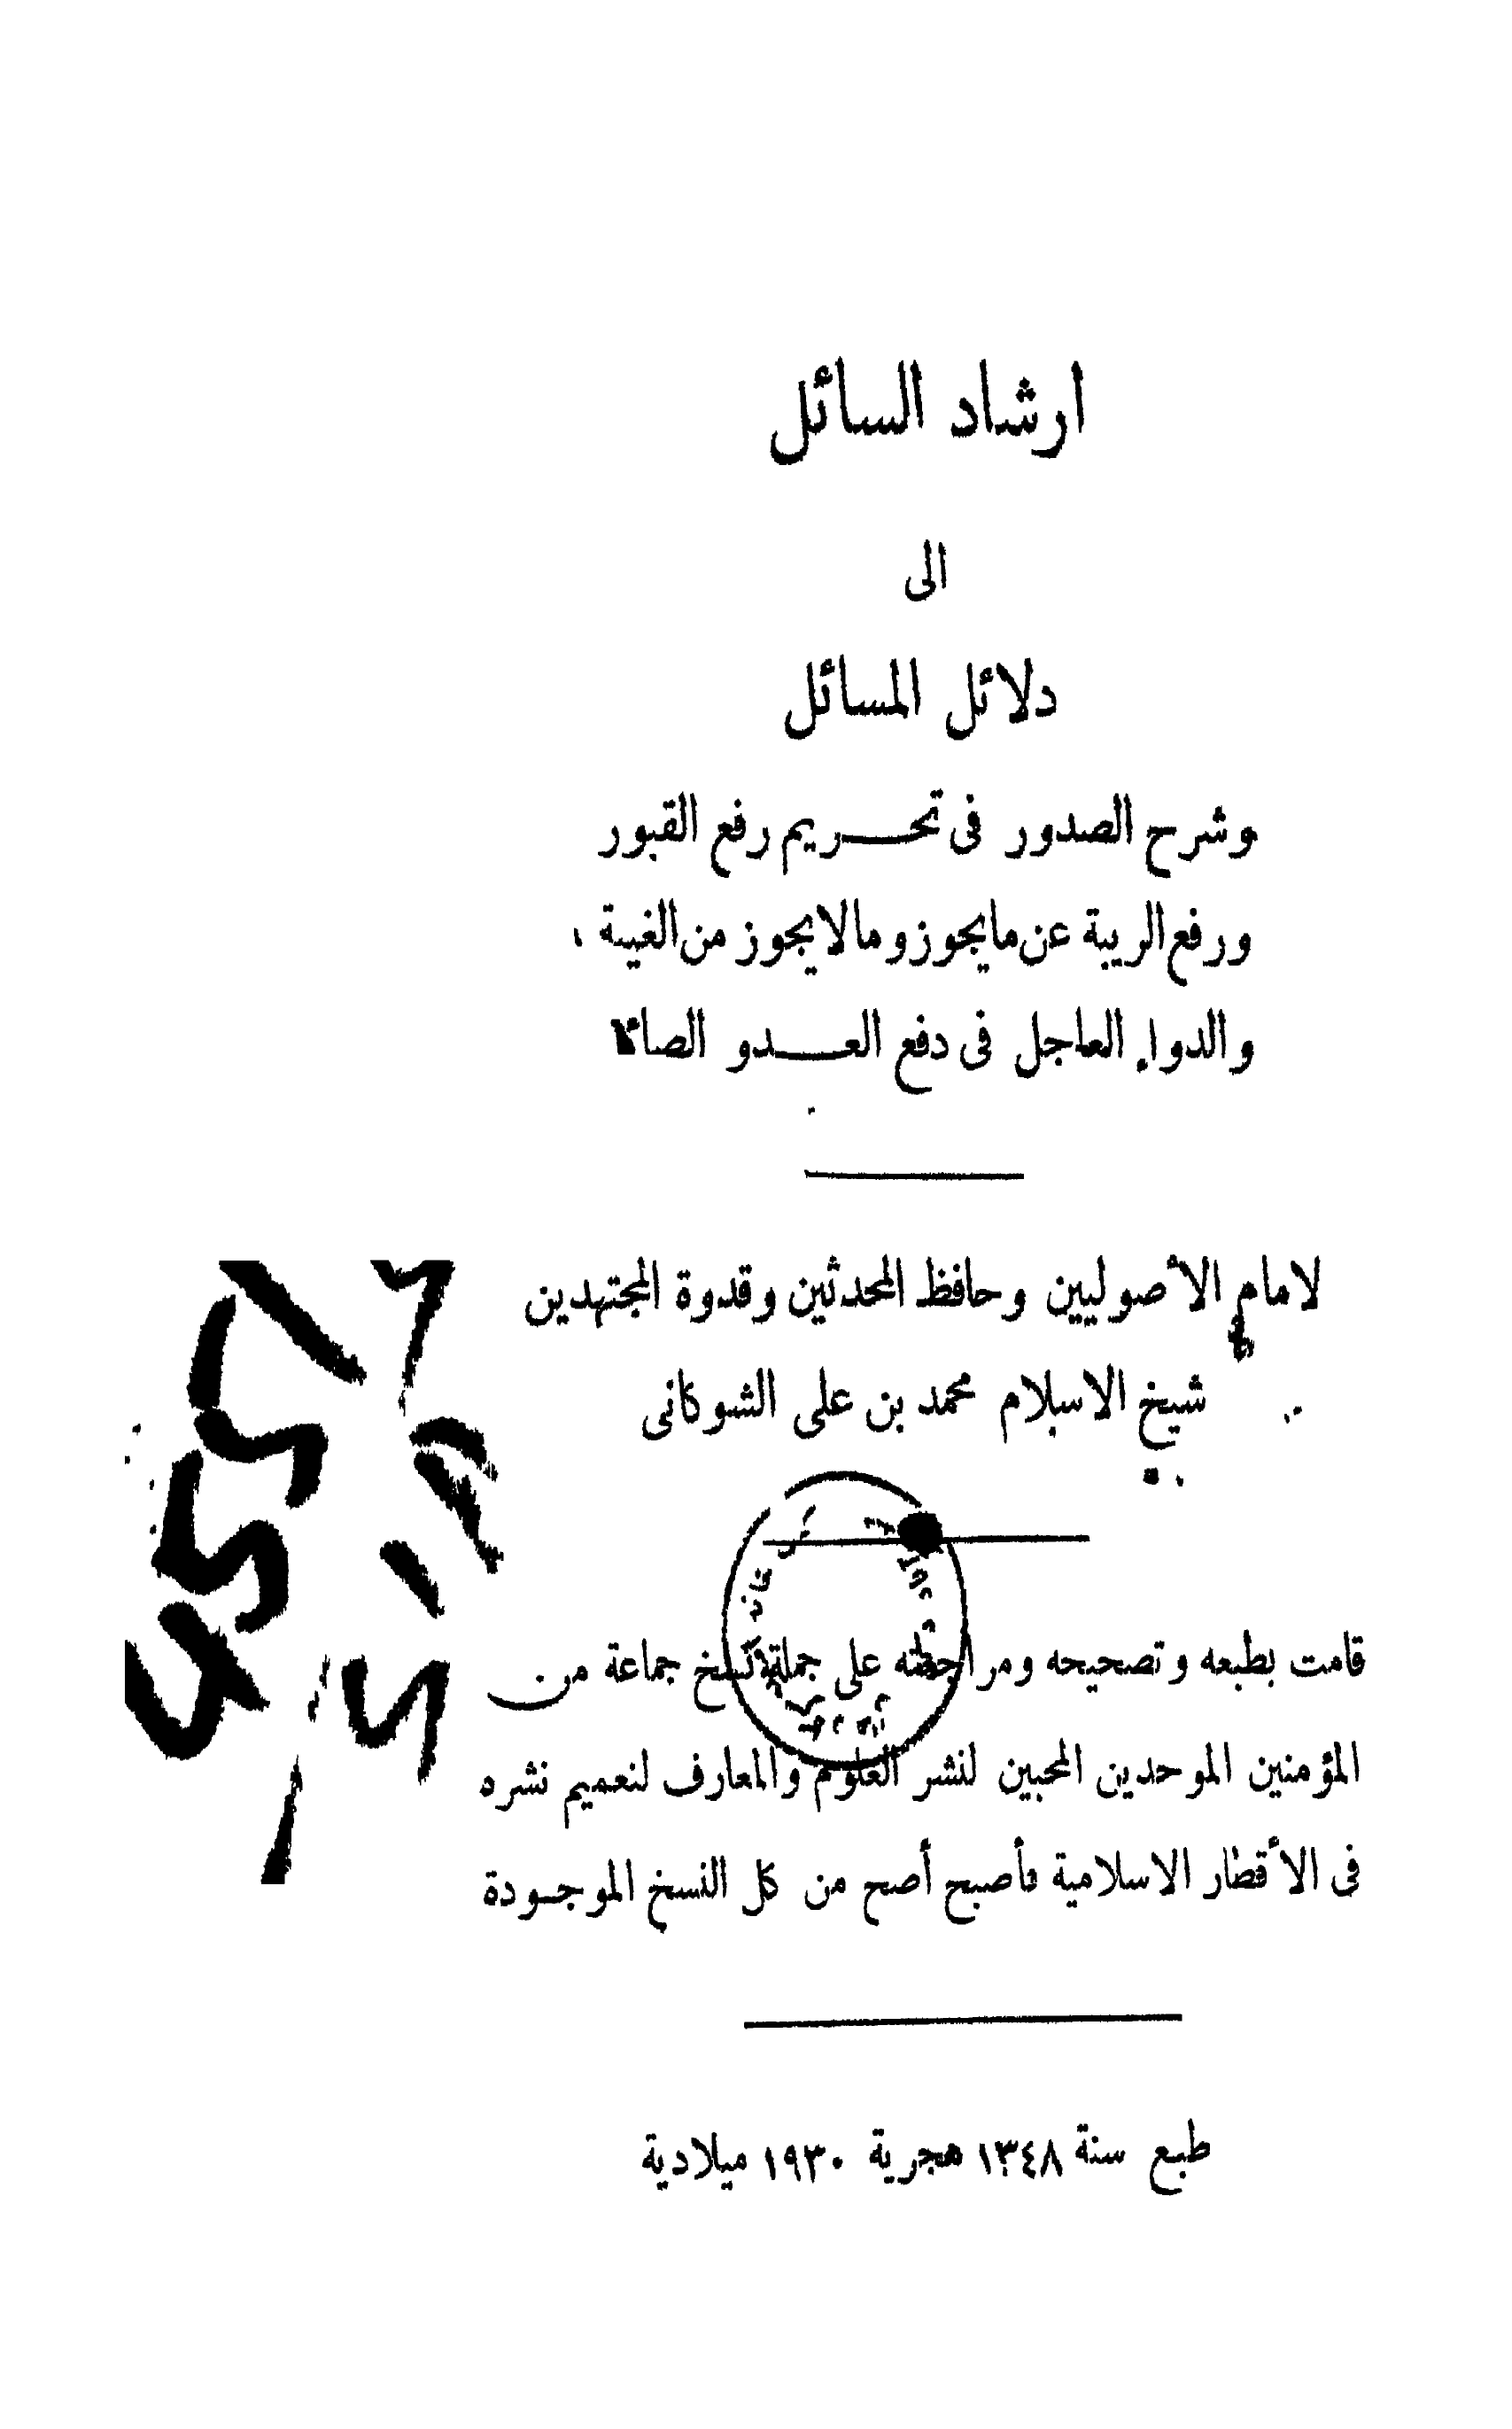 ارشاد السائل
الى
دلائل المسائل
وشرح الصدور فى تحريم رفع القبور
ورفع الريبة عن ما يجوز وما لا يجوز من الغيبة
والدواء العاجل فى دفع العدو الصائل
لامام الأصوليين وحافظ المحدثين وقدوة المجتهدين
شيخ الاسلام محمد بن على الشوكانى
قامت بطبعه وتصحيحه ومراجعته على جملة نسخ جماعة من
المؤمنين الموحدين المحبين لنشر العلوم والمعارف لتعميم نشره
فى الأقطار الاسلامية فأصبح أصح من كل النسخ الموجودة
طبع سنة ١٣٤٨ هجرية ١٩٣٠ ميلادية